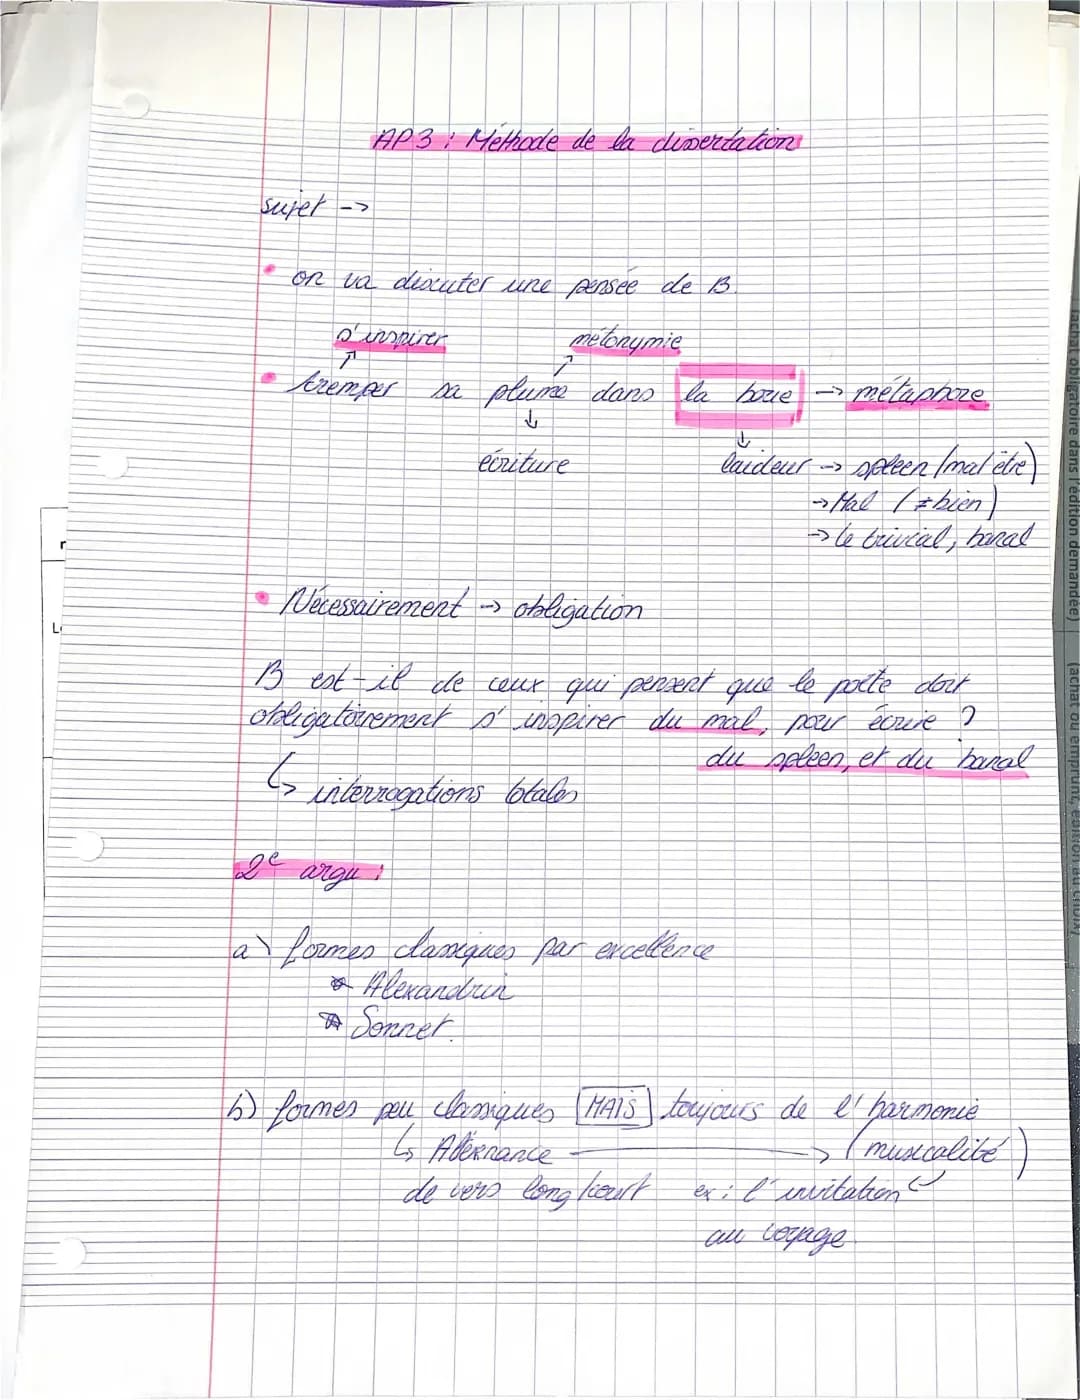 AP3 : Méthode de la dissertation
sujet -->
• on va discuter une pensée de B.
s'inspirer métonymie
• tremper sa plume dans la boue -> métaphore
écriture laideur -> spleen (mal être)
-> Mal (≠ bien)
-> le trivial, banal
• Nécessairement -> obligation
B est-il de ceux qui pensent que le poète doit
obligatoirement s'inspirer du mal, pour écrire ?
du spleen, et du banal
↳ interrogations totales
2e argu :
a) formes classiques par excellence
* Alexandrin
* Sonnet.
b) formes peu classiques MAIS toujours de l'harmonie
↳ Alternance -> (musicalité)
de vers long/court ex : l'invitation
au voyage
l'achat obligatoire dans l'édition demandée)
(achat ou emprunt, édition au choix)